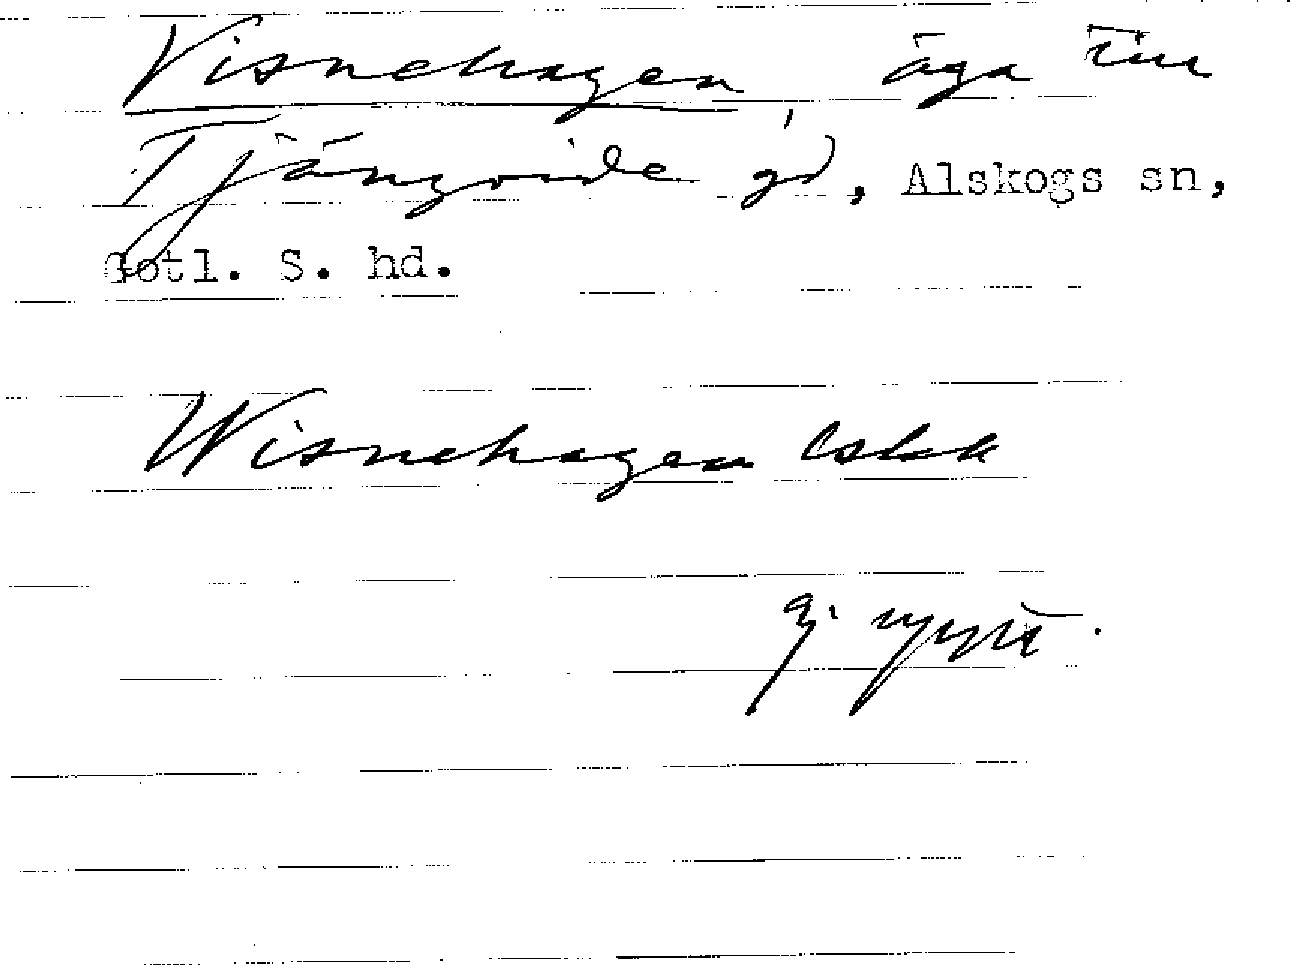 Visnehagen, äga till
Tjängvide gd, Alskogs sn,
Gotl. S. hd.
Wisnehagen Eskk
Ej nytt.